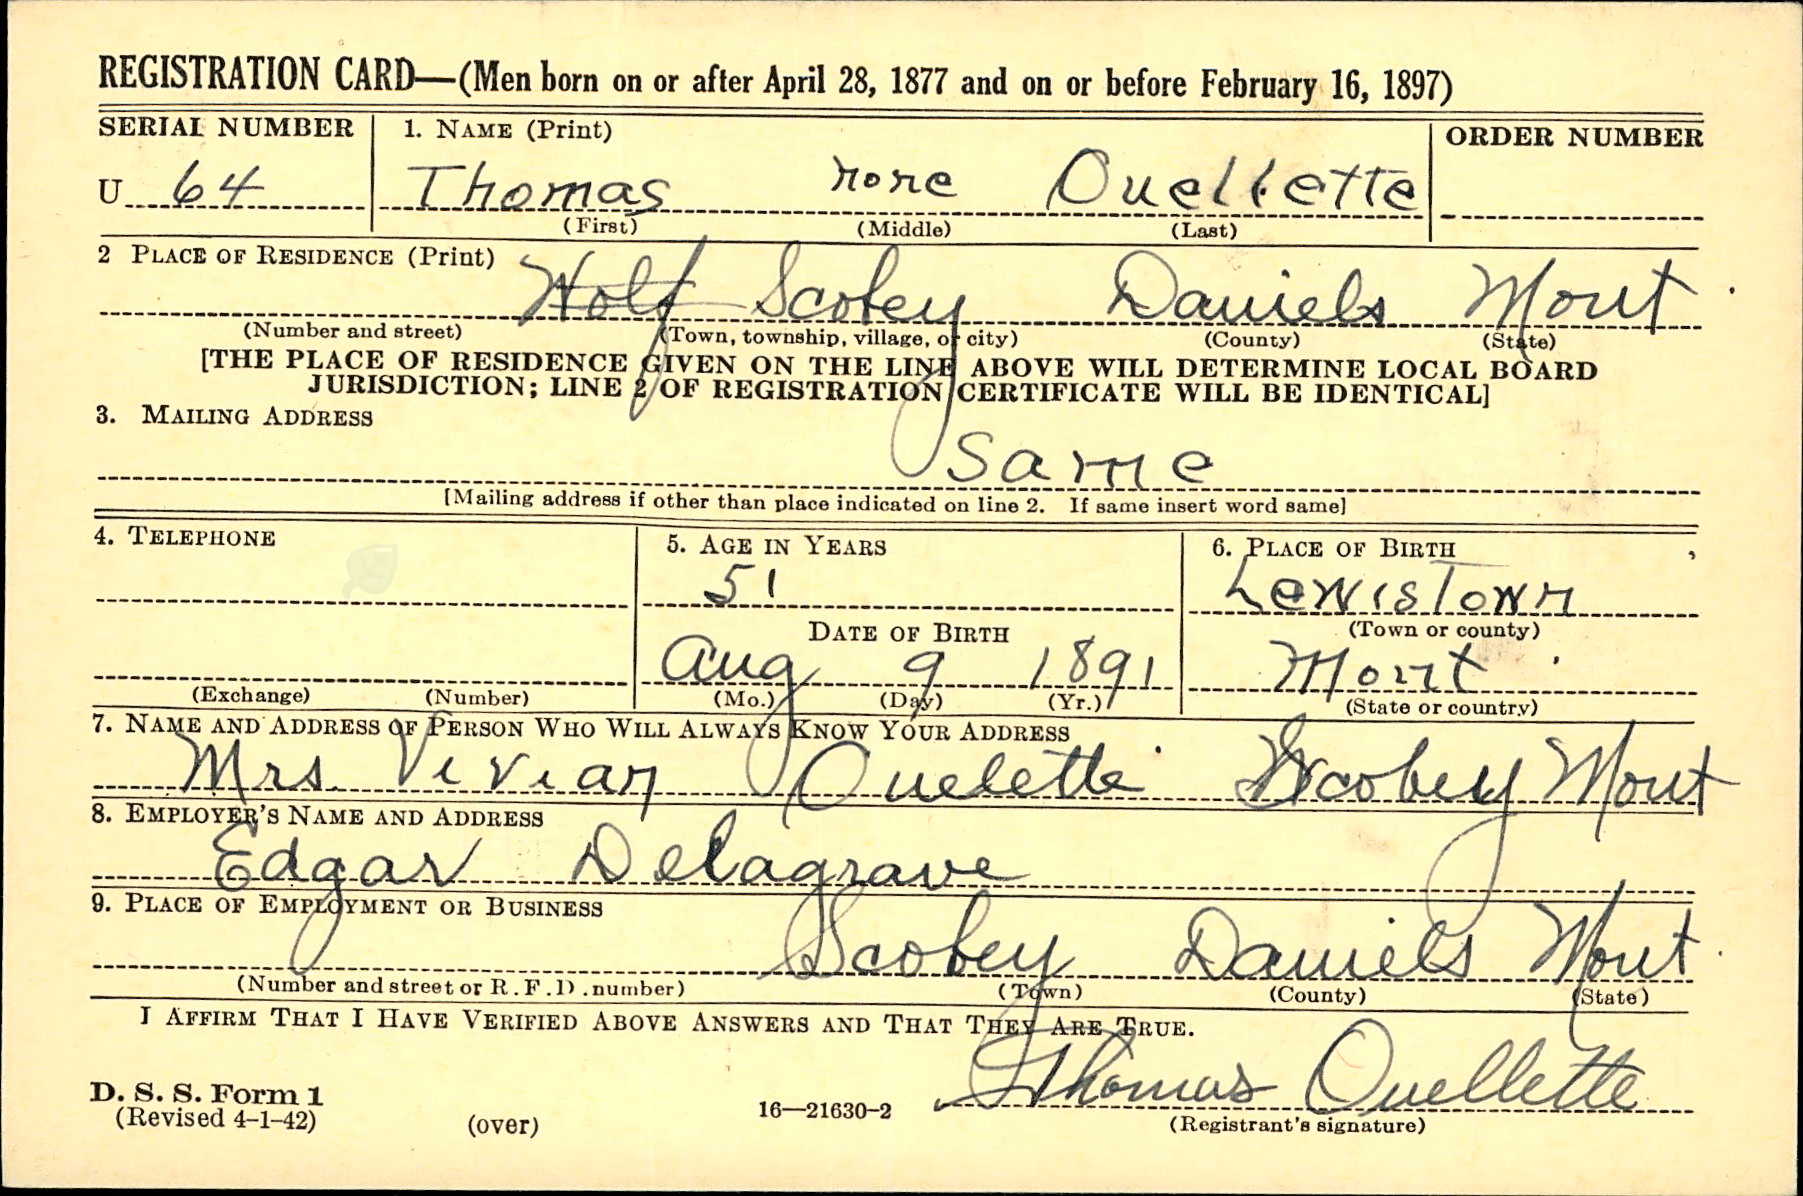 REGISTRATION CARD—(Men born on or after April 28, 1877 and on or before February 16, 1897)
SERIAL NUMBER 1. NAME (Print) ORDER NUMBER
U 64 Thomas none Ouellette
(First) (Middle) (Last)
2 PLACE OF RESIDENCE (Print)
Wolf Scobey Daniels Mont.
(Number and street) (Town, township, village, or city) (County) (State)
[THE PLACE OF RESIDENCE GIVEN ON THE LINE ABOVE WILL DETERMINE LOCAL BOARD
JURISDICTION; LINE 2 OF REGISTRATION CERTIFICATE WILL BE IDENTICAL]
3. MAILING ADDRESS
Same
[Mailing address if other than place indicated on line 2. If same insert word same]
4. TELEPHONE 5. AGE IN YEARS 6. PLACE OF BIRTH
51 Lewistown
DATE OF BIRTH (Town or county)
Aug 9 1891 Mont.
(Exchange) (Number) (Mo.) (Day) (Yr.) (State or country)
7. NAME AND ADDRESS OF PERSON WHO WILL ALWAYS KNOW YOUR ADDRESS
Mrs. Vivian Ouelette Scobey Mont
8. EMPLOYER'S NAME AND ADDRESS
Edgar Delagrave
9. PLACE OF EMPLOYMENT OR BUSINESS
Scobey Daniels Mont.
(Number and street or R.F.D. number) (Town) (County) (State)
I AFFIRM THAT I HAVE VERIFIED ABOVE ANSWERS AND THAT THEY ARE TRUE.
Thomas Ouellette
D. S. S. Form 1
(Revised 4-1-42) (over) 16—21630-2 (Registrant's signature)